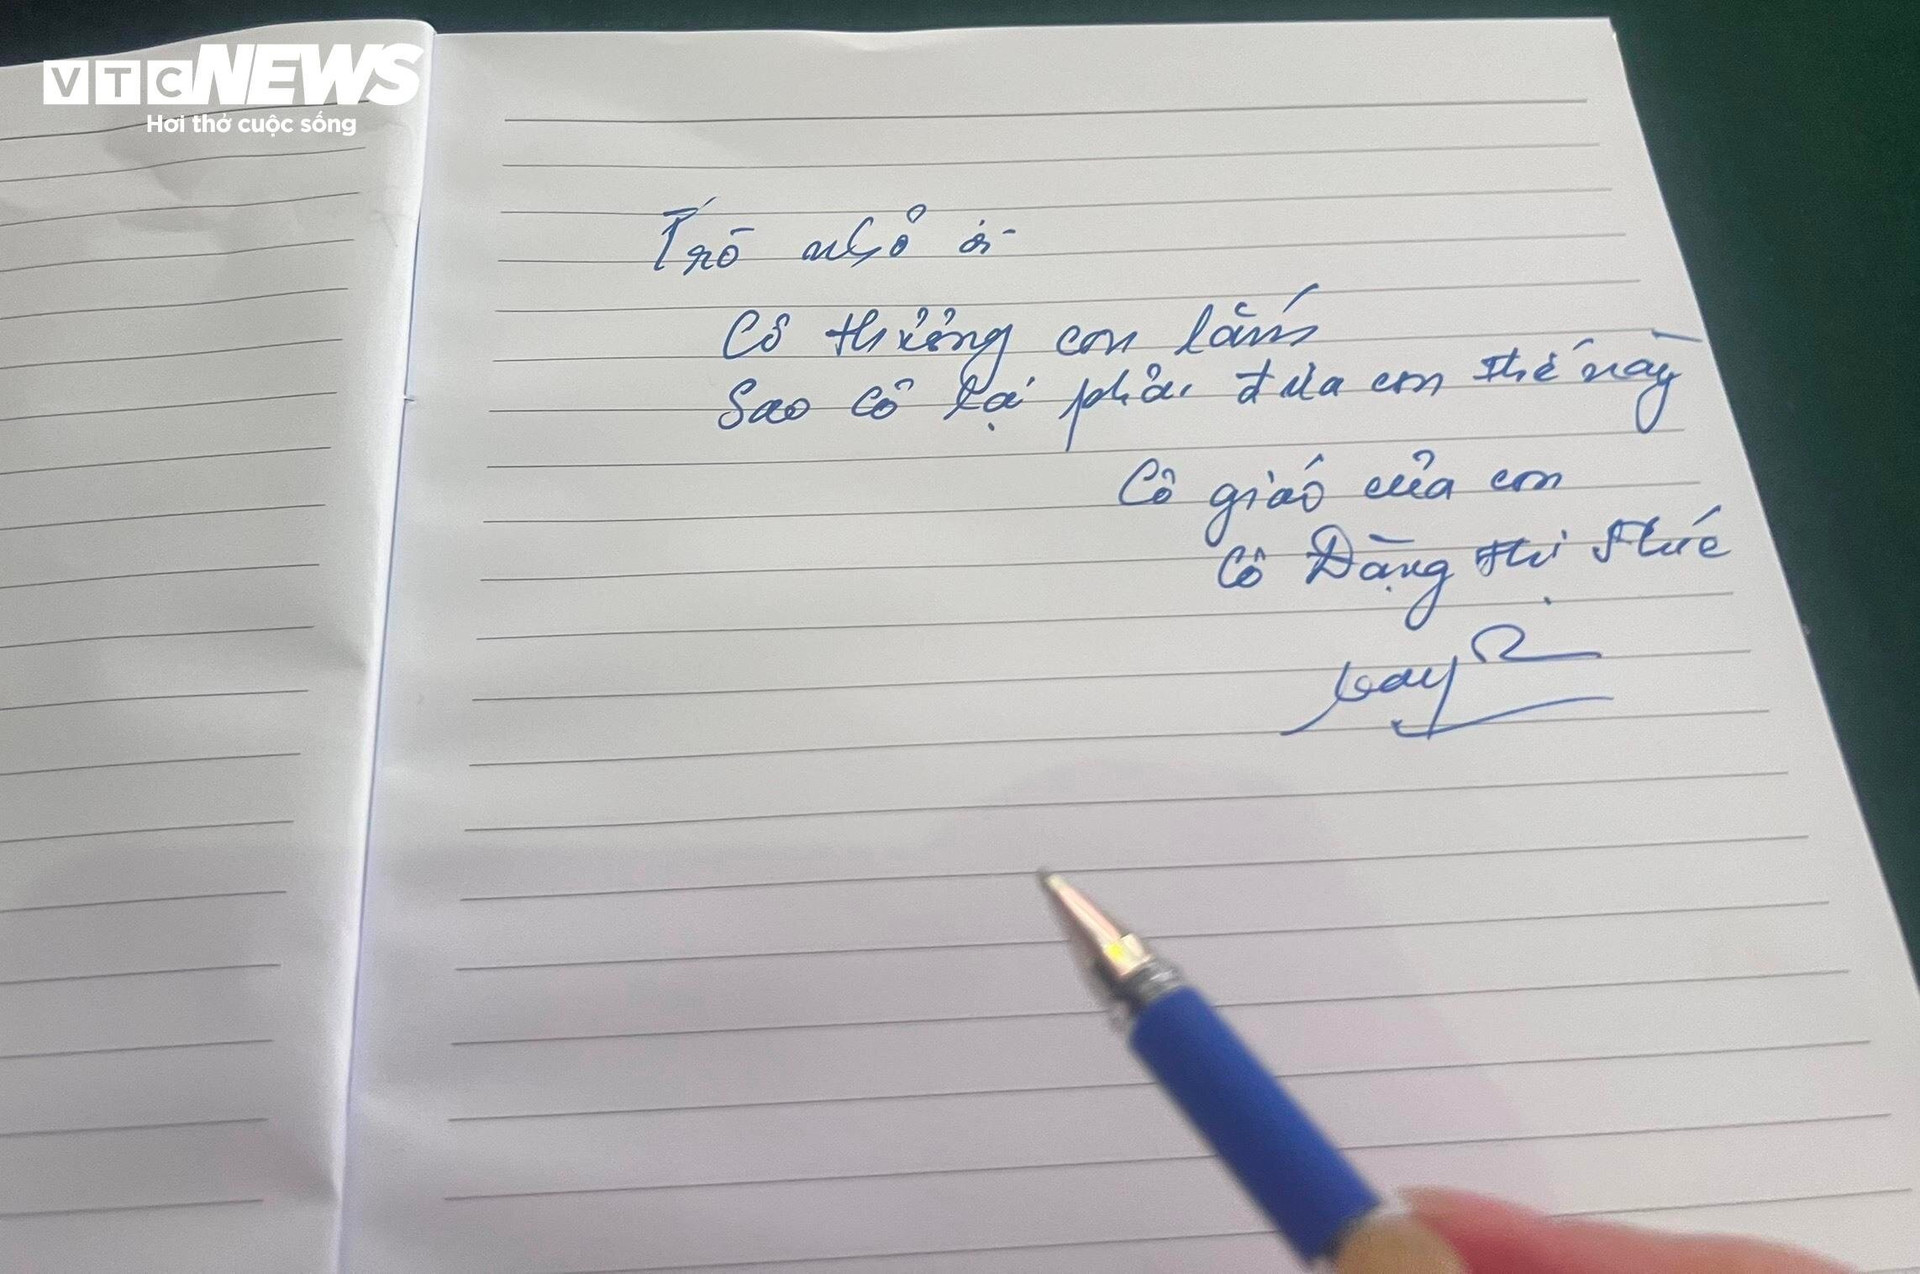 VTC NEWS
Hơi thở cuộc sống
Trò nhỏ ơi
Cô thương con lắm
Sao cô lại phải đưa con thế này
Cô giáo của con
Cô Đặng Thị